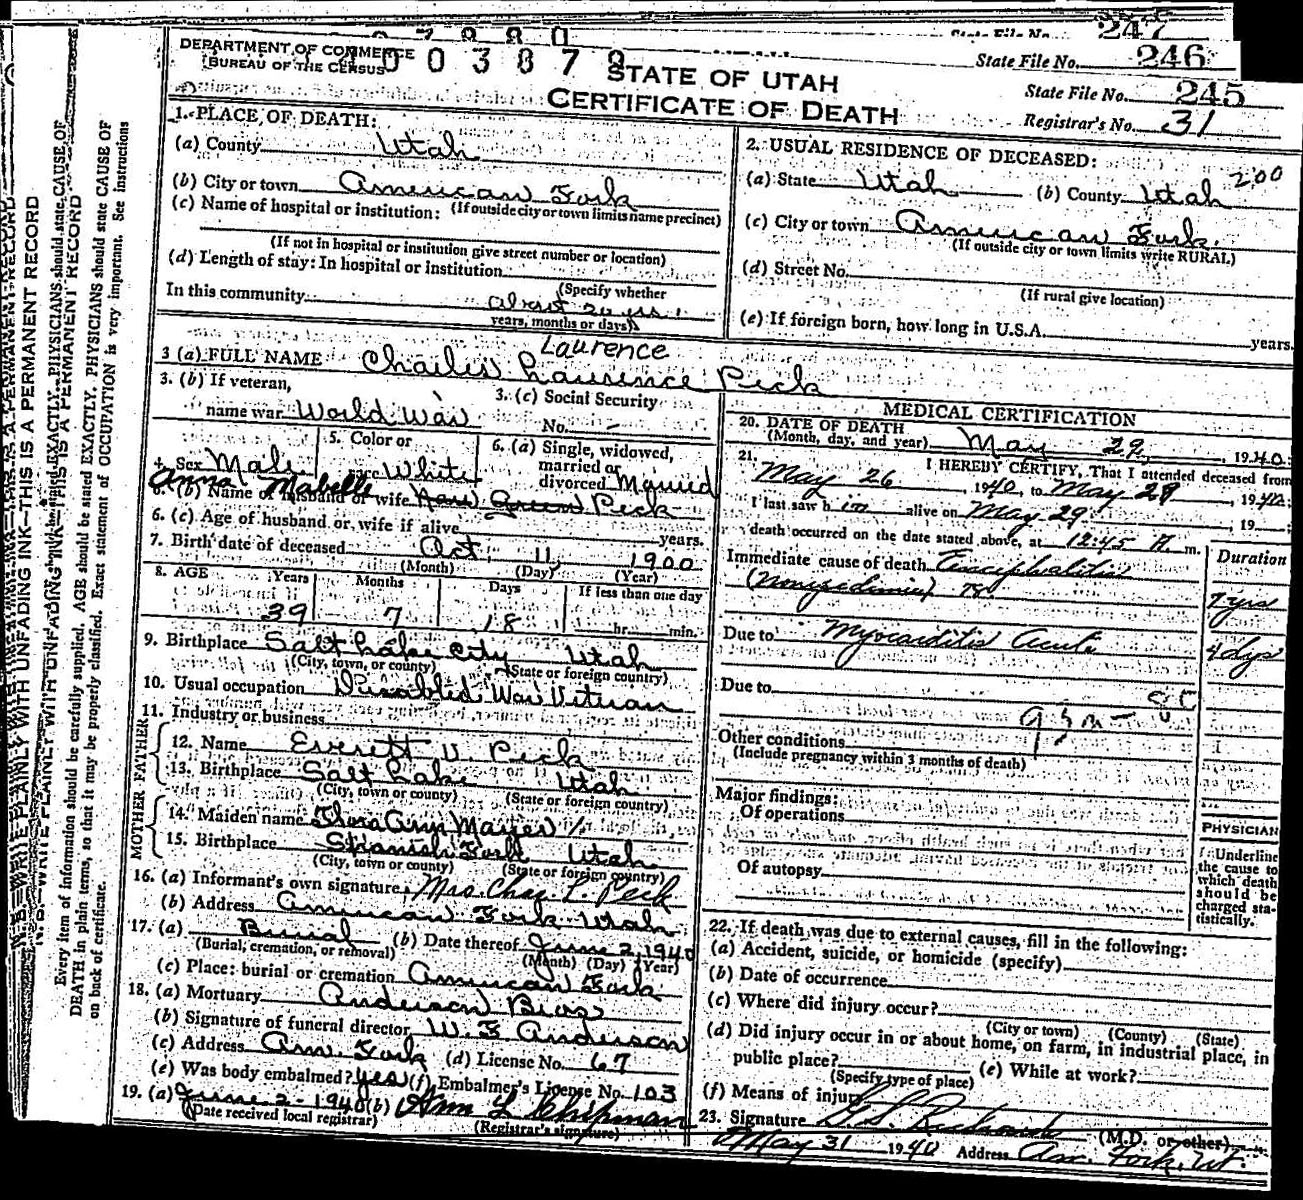 247
State File No. 246
DEPARTMENT OF COMMERCE
BUREAU OF THE CENSUS
4003879
STATE OF UTAH
CERTIFICATE OF DEATH
State File No. 245
Registrar's No. 31
N. B. WRITE PLAINLY WITH UNFADING INK—THIS IS A PERMANENT RECORD
Every item of information should be carefully supplied. AGE should be stated EXACTLY. PHYSICIANS should state CAUSE OF
DEATH in plain terms, so that it may be properly classified. Exact statement of OCCUPATION is very important. See instructions
on back of certificate.
1. PLACE OF DEATH:
(a) County Utah
(b) City or town American Fork
(If outside city or town limits name precinct)
(c) Name of hospital or institution:
(If not in hospital or institution give street number or location)
(d) Length of stay: In hospital or institution
(Specify whether
In this community about 20 yrs.
years, months or days)
2. USUAL RESIDENCE OF DECEASED:
200
(a) State Utah (b) County Utah
(c) City or town American Fork
(If outside city or town limits write RURAL)
(d) Street No.
(If rural give location)
(e) If foreign born, how long in U.S.A. years.
Laurence
3 (a) FULL NAME Charles Laurence Peck
3. (b) If veteran,
name war World War
3. (c) Social Security
No. -
4. Sex Male
5. Color or
race White
6. (a) Single, widowed,
married or
divorced Married
Anna Mabelle
6. (b) Name of husband or wife Green Peck
6. (c) Age of husband or wife if alive years.
7. Birth date of deceased Oct 11 1900
(Month) (Day) (Year)
8. AGE Years Months Days If less than one day
39 7 18 hr. min.
9. Birthplace Salt Lake City Utah
(City, town, or county) (State or foreign country)
10. Usual occupation Disabled War Veteran
11. Industry or business
FATHER
12. Name Everett V. Peck
13. Birthplace Salt Lake Utah
(City, town or county) (State or foreign country)
MOTHER
14. Maiden name Thora Ann Mayer
15. Birthplace Spanish Fork Utah
(City, town or county) (State or foreign country)
16. (a) Informant's own signature Mrs. Chas. L. Peck
(b) Address American Fork Utah
17. (a) Burial (b) Date thereof June 2, 1940
(Burial, cremation, or removal) (Month) (Day) (Year)
(c) Place: burial or cremation American Fork
18. (a) Mortuary Anderson Bros
(b) Signature of funeral director W. E. Anderson
(c) Address Am. Fork (d) License No. 67
(e) Was body embalmed? Yes (f) Embalmer's License No. 103
19. (a) June 2-1940 (b) Ann L. Chipman
(Date received local registrar) (Registrar's signature)
MEDICAL CERTIFICATION
20. DATE OF DEATH
(Month, day, and year) May 29, 1940
21. I HEREBY CERTIFY, That I attended deceased from
May 26, 1940, to May 29, 1940
I last saw him alive on May 29, 19
death occurred on the date stated above, at 12:45 A. m.
Duration
Immediate cause of death Encephalitis
7 yrs
Due to Myocarditis Acute 4 dys
Due to
Other conditions
(Include pregnancy within 3 months of death)
Major findings:
Of operations
Of autopsy
PHYSICIAN
Underline
the cause to
which death
should be
charged sta-
tistically.
22. If death was due to external causes, fill in the following:
(a) Accident, suicide, or homicide (specify)
(b) Date of occurrence
(c) Where did injury occur?
(City or town) (County) (State)
(d) Did injury occur in or about home, on farm, in industrial place, in
public place? (e) While at work?
(Specify type of place)
(f) Means of injury
23. Signature G. S. Richards (M.D. or other)
May 31 1940 Address Am. Fork, Ut.